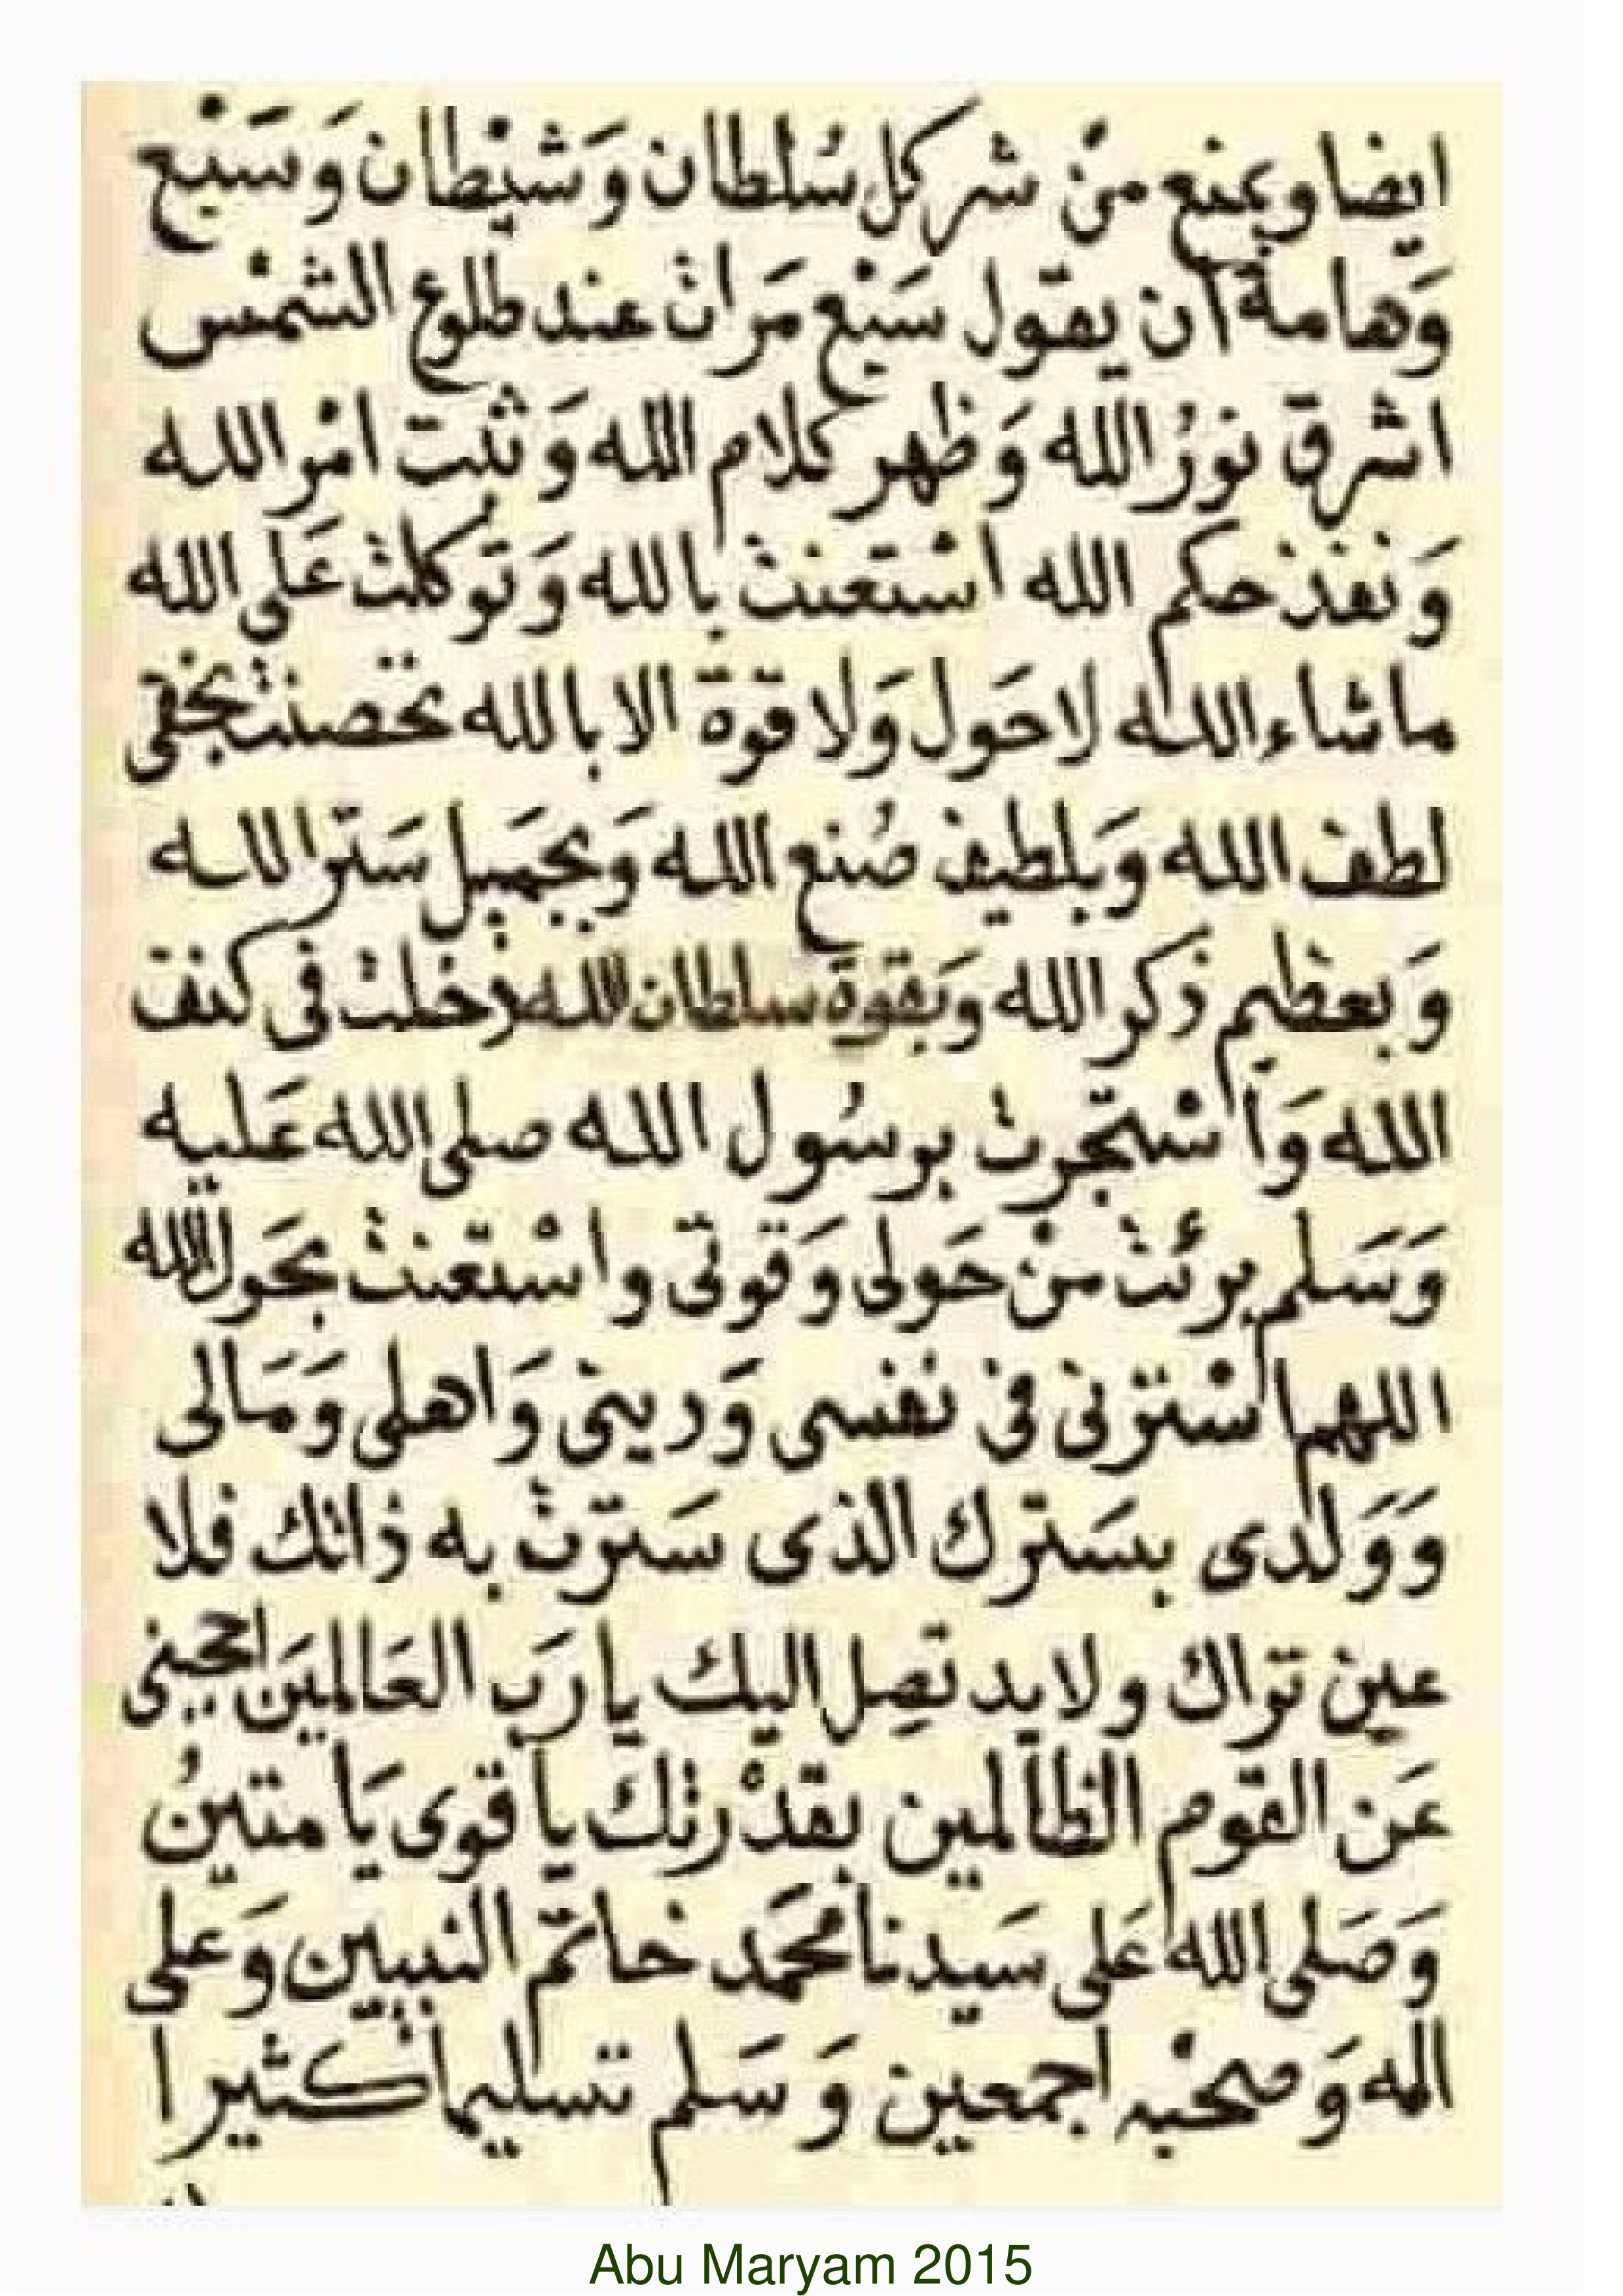 ايضا ويمنع منْ شر كل سُلطان وَشيْطان وَسَبْع
وَهامة أن يقول سَبْع مَرات عند طلوع الشمْس
اشرق نورُ الله وَظهر كلام الله وَثبت امْر الله
وَنفذ حكم الله اسْتعنت بالله وَتوكلت عَلى الله
ما شاء الله لا حَول وَلا قوة الا بالله تحصنت بخفى
لطف الله وَبلطيف صُنع الله وَبجَميل سَتر الله
وَبعظيم ذكر الله وَبقوة سلطان الله دخلت فى كنف
الله وَاسْتجرت برسُول الله صلى الله عَليه
وَسَلم برئت منْ حَولى وَقوتى واسْتعنت بحَول الله
اللهم اسْترنى في نفسى وَدينى وَاهلى وَمَالى
وَوَلدى بسَترك الذى سَترت به ذاتك فلا
عين تراك ولا يد تصِل اليك يا رَب العَالمينَ احجبنى
عَن القوم الظالمين بقدْرتك يا قوى يَا متينُ
وَصَلى الله عَلى سَيدنا محمَد خاتم النبيين وَعلى
اله وَصحْبه اجمعين وَسَلم تسليما كثيرا
Abu Maryam 2015